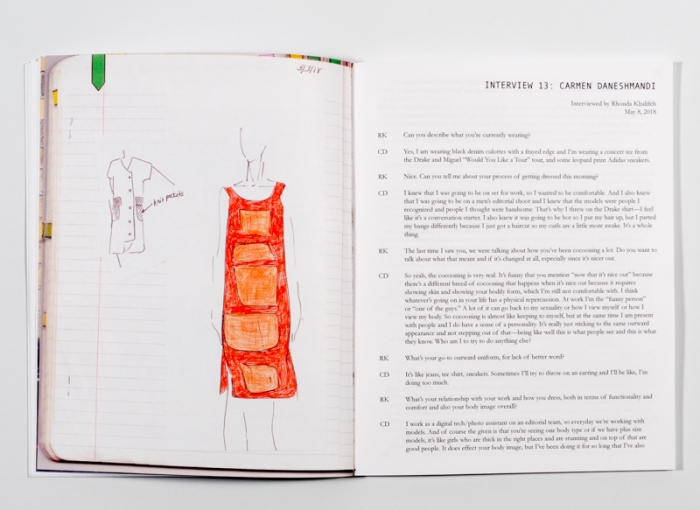 5/3/18
knit pockets
INTERVIEW 13: CARMEN DANESHMANDI
Interviewed by Rhonda Khalifeh
May 8, 2018
RK Can you describe what you're currently wearing?
CD Yes, I am wearing black denim culottes with a frayed edge and I'm wearing a concert tee from
the Drake and Miguel "Would You Like a Tour" tour, and some leopard print Adidas sneakers.
RK Nice. Can you tell me about your process of getting dressed this morning?
CD I knew that I was going to be on set for work, so I wanted to be comfortable. And I also knew
that I was going to be on a men's editorial shoot and I knew that the models were people I
recognized and people I thought were handsome. That's why I threw on the Drake shirt—I feel
like it's a conversation starter. I also knew it was going to be hot so I put my hair up, but I parted
my bangs differently because I just got a haircut so my curls are a little more awake. It's a whole
thing.
RK The last time I saw you, we were talking about how you've been cocooning a lot. Do you want to
talk about what that meant and if it's changed at all, especially since it's nicer out.
CD So yeah, the cocooning is very real. It's funny that you mention "now that it's nice out" because
there's a different breed of cocooning that happens when it's nice out because it requires
showing skin and showing your bodily form, which I'm still not comfortable with. I think
whatever's going on in your life has a physical repercussion. At work I'm the "funny person"
or "one of the guys." A lot of it can go back to my sexuality or how I view myself or how I
view my body. So cocooning is almost like keeping to myself, but at the same time I am present
with people and I do have a sense of a personality. It's really just sticking to the same outward
appearance and not stepping out of that—being like well this is what people see and this is what
they know. Who am I to try to do anything else?
RK What's your go to outward uniform, for lack of better word?
CD It's like jeans, tee shirt, sneakers. Sometimes I'll try to throw on an earring and I'll be like, I'm
doing too much.
RK What's your relationship with your work and how you dress, both in terms of functionality and
comfort and also your body image overall?
CD I work as a digital tech/photo assistant on an editorial team, so everyday we're working with
models. And of course the given is that you're seeing one body type or if we have plus size
models, it's like girls who are thick in the right places and are stunning and on top of that are
good people. It does effect your body image, but I've been doing it for so long that I've also